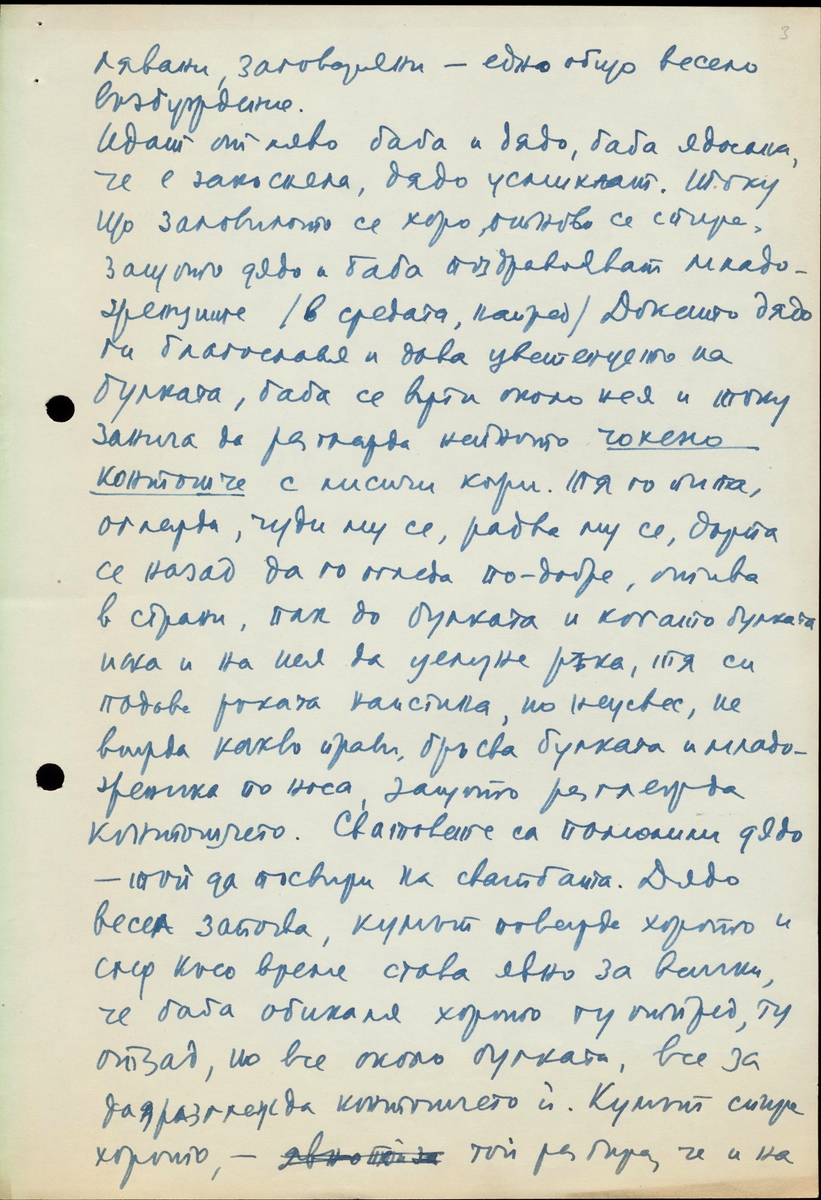 3
лявани, заповядани – едно общо весело
възбуждение.
Идат от ляво баба и дядо, баба ядосана,
че е закъсняла, дядо усмихнат. И току
що заловилото се хоро, отново се спира,
защото дядо и баба поздравяват младо-
женците /в средата, напред/ Докато дядо
ги благославя и дава цветенцето на
булката, баба се върти около нея и току
заничa да разглежда нейното чохено
контошче с лисичи кожи. Тя го пипа,
оглежда, чуди му се, радва му се, дърпа
се назад да го огледа по-добре, отива
в страни, пак до булката и когато булката
иска и на нея да целуне ръка, тя си
подава ръката наистина, но неусвес, не
вижда какво прави, бръсва булката и младо-
женика по носа, защото разглежда
контошчето. Сватовете са помолили дядо
– той да посвири на сватбата. Дядо
весел запосва, кумът повежда хорото и
след късо време става явно за всички,
че баба обикаля хорото ту отпред, ту
отзад, но все около булката, все за
да разглежда контошчето ѝ. Кумът спира
хорото, – той разбира, че и на